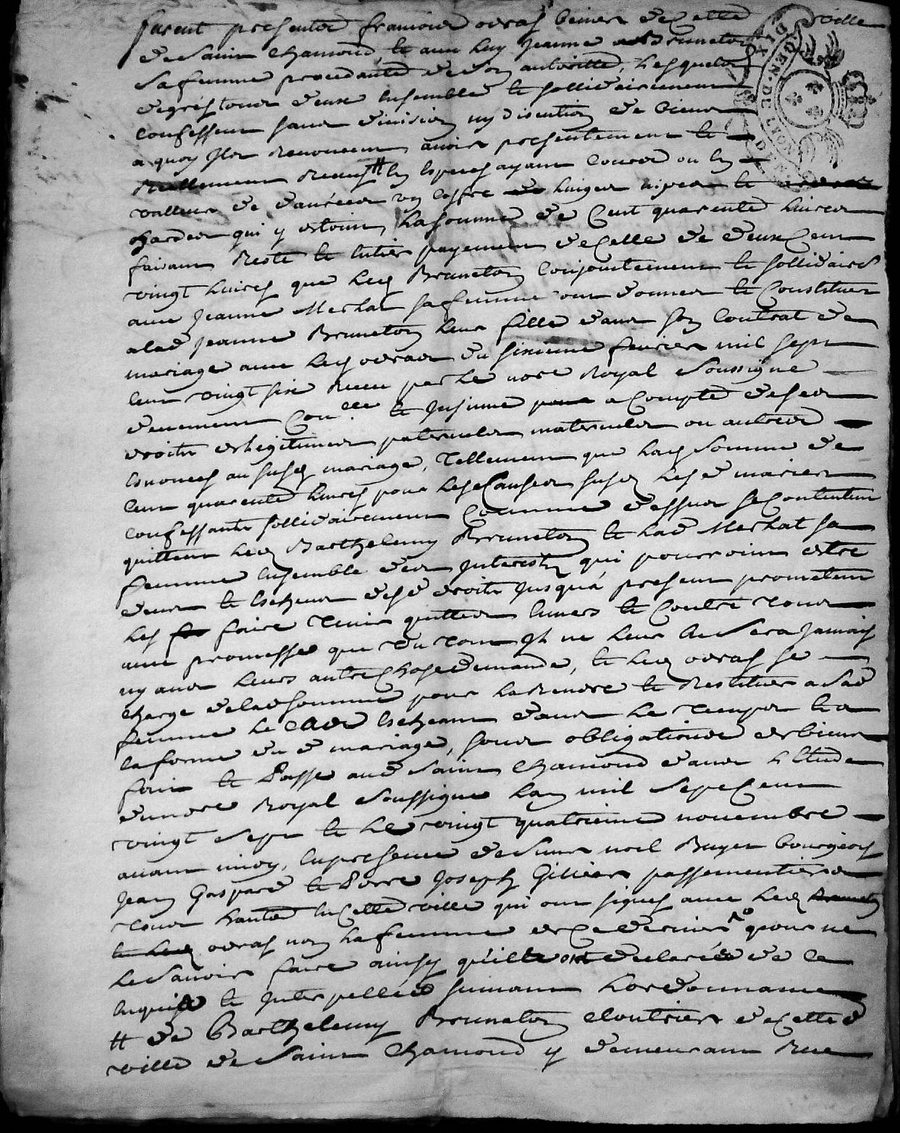 furent presents francois odras beinier de cette ville
de Saint Chamond et avec luy Jeanne Bruneton
sa femme procedante de son autorité, lesquels
de gré tous deux ensemble et sollidairement
confessent sans division ny discution de biens
a quoy ils renoncent avoir presentement et
reellement receu # en especes ayant cours ou en
valleur de danrées un coffre linges nipes et
hardes qui y estoint la somme de Cent quarente livres
faisant reste et entier payement de celle de deux Cent
vingt livres que led Bruneton conjointement et sollidairem
avec Jeanne Mechat sa femme ont donnée et constituée
a lad Jeanne Bruneton leur fille dans son contrat de
mariage avec led odras du sixieme fevrier mil sept
cent vingt six receu par le no.re Royal soussigné
deuement Con.llé et insinué a compte de ses
droits et legitimes paternels maternels ou autres
enoncés au susd mariage, tellement que lad somme de
cent quarente livres pour les causes susd lesd mariés
confessants sollidairement comme dessus se contentent
quittent led Barthelemy Bruneton et lad Mechat sa
femme ensemble des interests qui pourroint estre
deus et escheus desd droits jusqu'a present promettent
les faire tenir quittes envers et contre tous
avec promesse que du tout il ne leur en sera jamais
ny aux leurs autre chose demandé, et led odras se
charge de lad somme pour la rendre et restituer a sad
femme le cas escheant dans le temps et a
la forme du d mariage, sous obligations de biens
fait et passé aud Saint Chamond dans l'etude
du no.re Royal soussigné l'an mil sept Cent
vingt sept et le vingt quatrieme novembre
avant midy, en presence de Sieur noel Buyet bourgeois
Jean Gaspard et Pierre Joseph Gillier passementiers
tous habitants en cette ville qui ont signés avec led Bruneton
et led odras non la femme de ce dernier pour ne
le savoir faire ainsy qu'elle ont declarée de ce
enquise et interpellée suivant l'ordonnance
# de Barthelemy Bruneton cloutier de cette
ville de Saint Chamond y demeurant rue